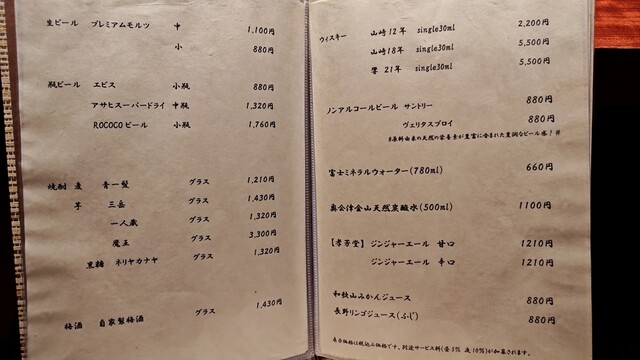 生ビール プレミアムモルツ 中 1,100円
小 880円
瓶ビール エビス 小瓶 880円
アサヒスーパードライ 中瓶 1,320円
ROCOCOビール 小瓶 1,760円
焼酎 麦 青一髪 グラス 1,210円
芋 三岳 グラス 1,430円
一人蔵 グラス 1,320円
魔王 グラス 3,300円
黒糖 ネリヤカナヤ グラス 1,320円
梅酒 自家製梅酒 グラス 1,430円
ウィスキー 山崎12年 single30ml 2,200円
山崎18年 single30ml 5,500円
響21年 single30ml 5,500円
ノンアルコールビール サントリー 880円
ヴェリタスブロイ 880円
※原料由来の天然の栄養素が豊富に含まれた豊潤なビール感!※
富士ミネラルウォーター(780ml) 660円
奥会津金山天然炭酸水(500ml) 1100円
【孝乃堂】ジンジャーエール 甘口 1210円
ジンジャーエール 辛口 1210円
和歌山みかんジュース 880円
長野リンゴジュース(ふじ) 880円
表示価格は税込み価格です。別途サービス料(昼5% 夜10%)が加算されます。